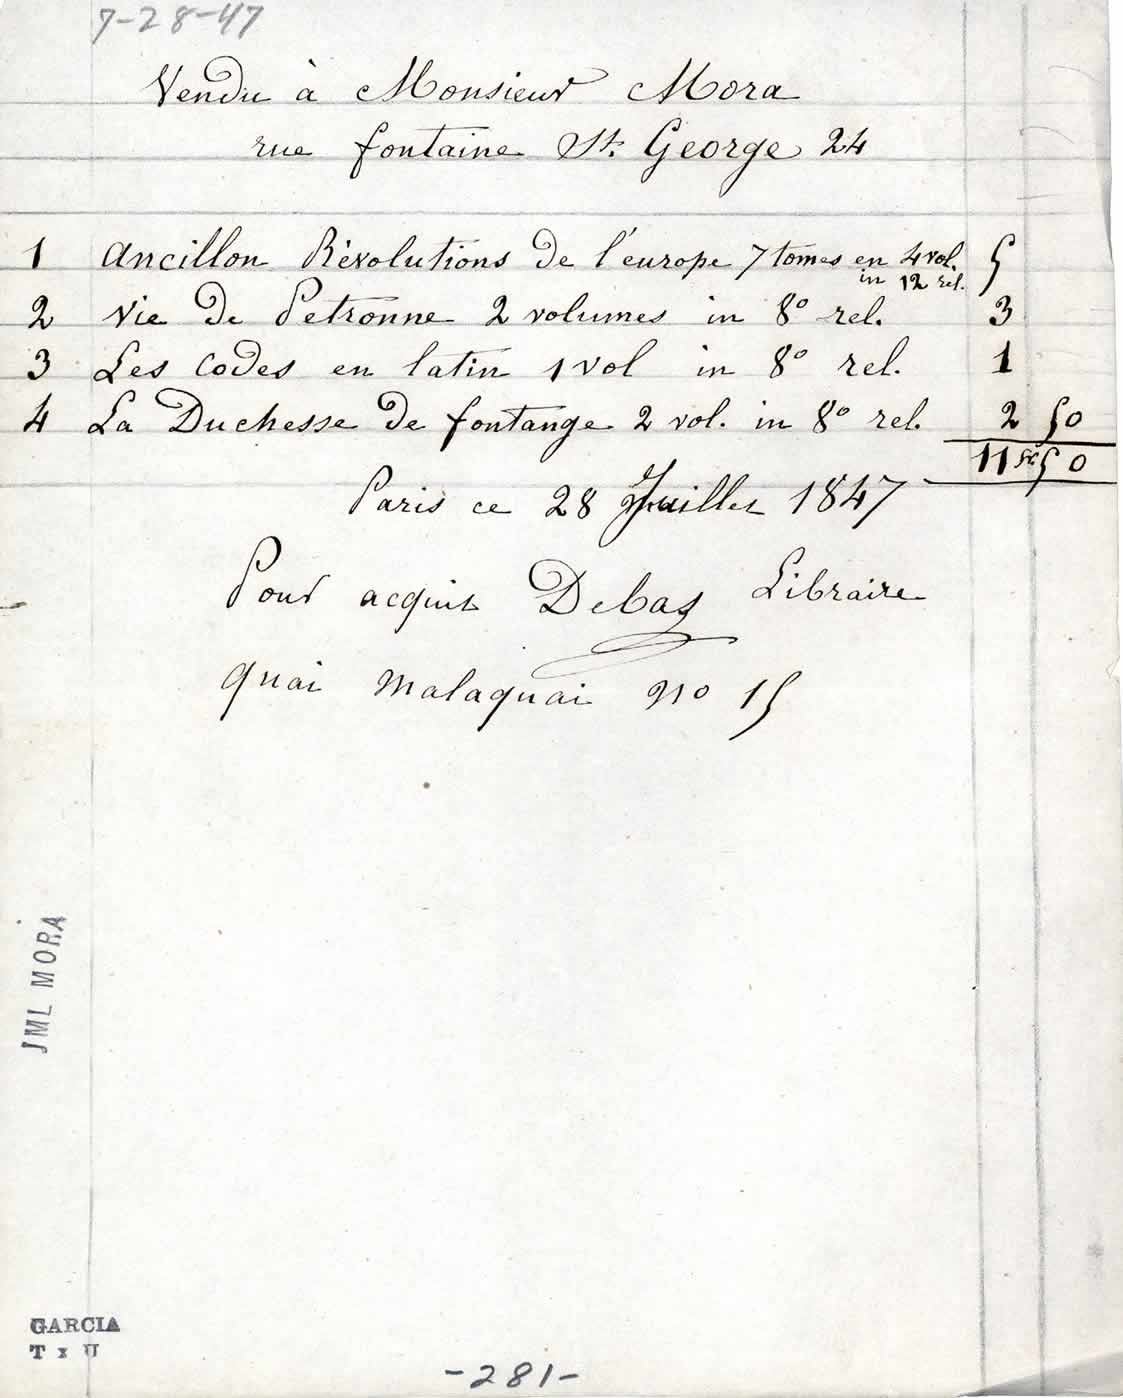 7-28-47
Vendu à Monsieur Mora
rue fontaine St. George 24
1 Ancillon Révolutions de l'europe 7 tomes en 4 vol. 5
in 12 rel.
2 Vie de Petronne 2 volumes in 8º rel. 3
3 Les codes en latin 1 vol in 8º rel. 1
4 La Duchesse de fontange 2 vol. in 8º rel. 2 50
11 fr 50
Paris ce 28 Juillet 1847
Pour acquit Debas Libraire
quai malaquai no 15
JML MORA
GARCIA
T x U
-281-